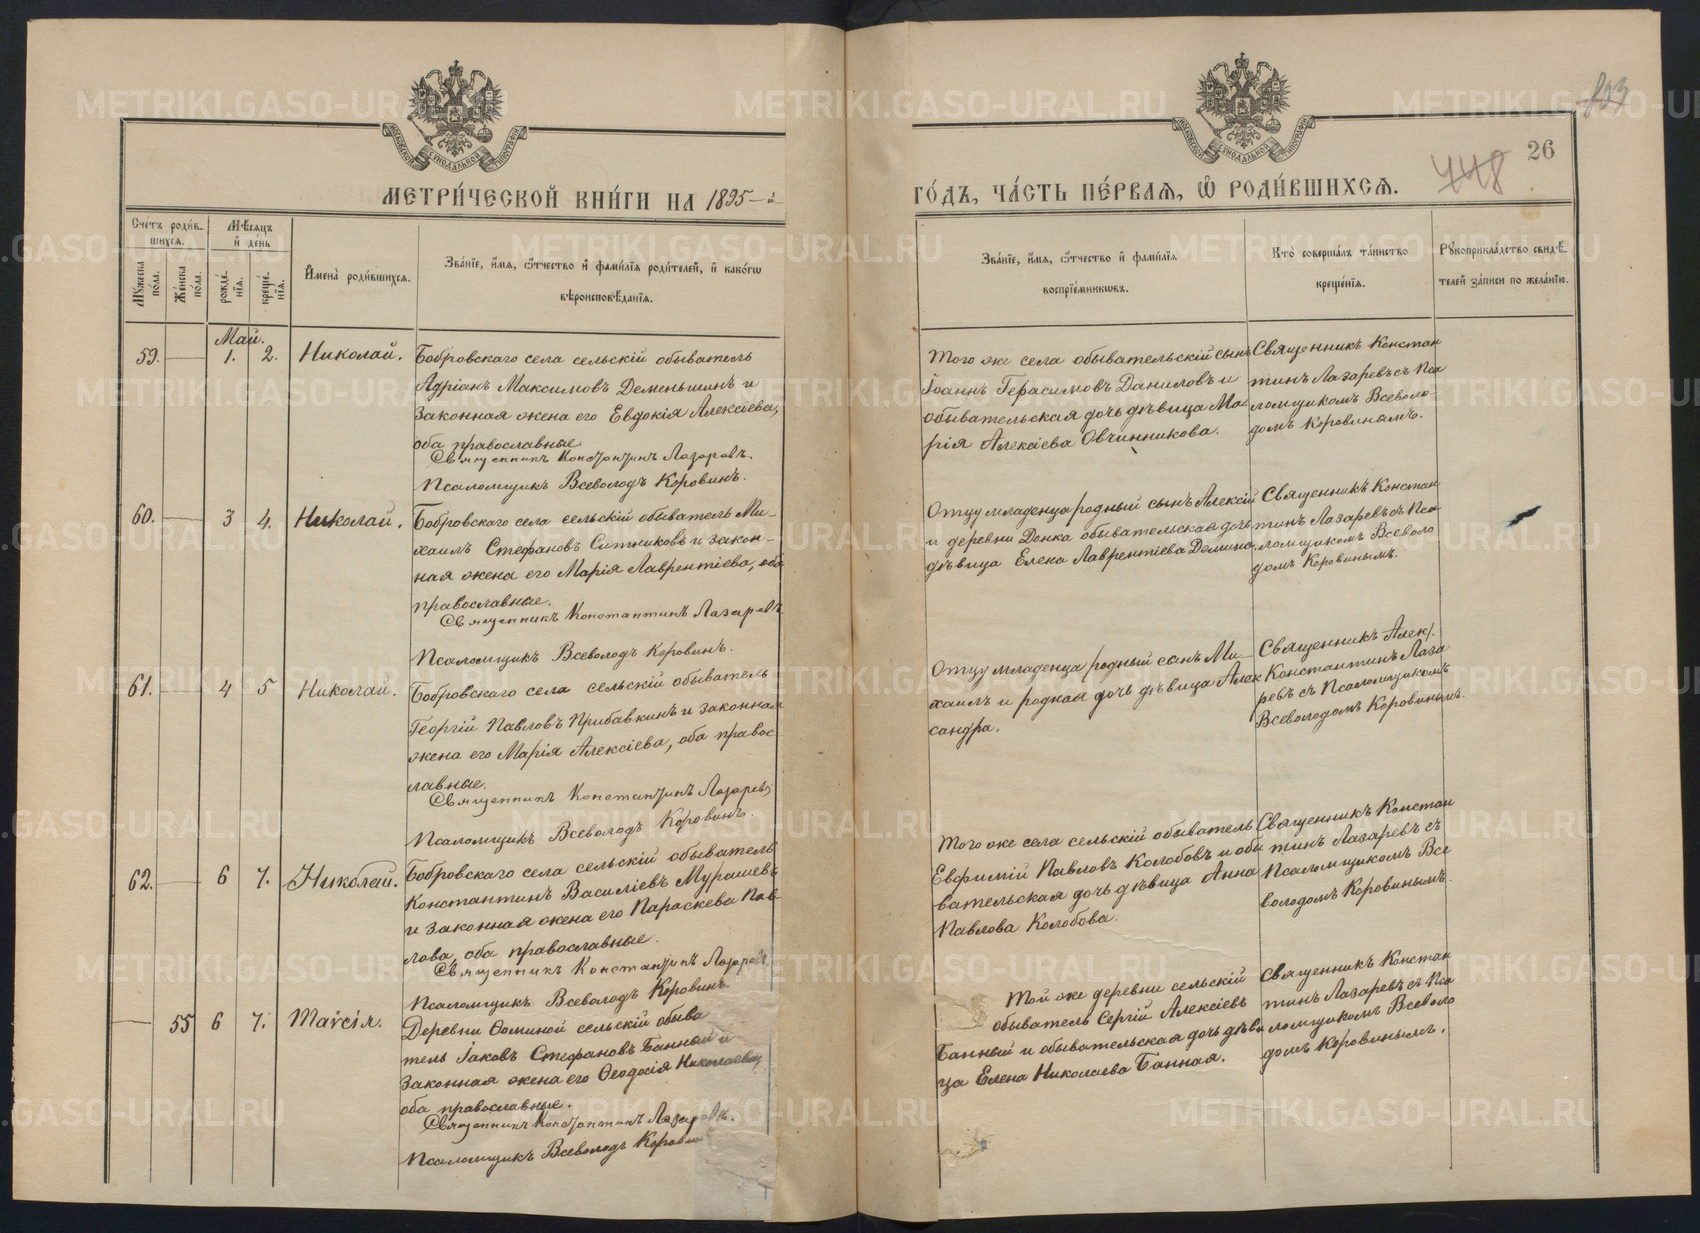 МЕТРИ́ЧЕСКОЙ КНИ́ГИ НА 1895-й
ГО́ДЪ, ЧА́СТЬ ПЕ́РВАѦ, Ѡ҆ РОДИ́ВШИХСѦ.
26
448
МОСКОВСКОЙ СѴНОДАЛЬНОЙ ТИПОГРАФІИ
МОСКОВСКОЙ СѴНОДАЛЬНОЙ ТИПОГРАФІИ
Сче́тъ роди́вшихсѧ.
Мꙋ́жеска по́ла.
Же́нска по́ла.
Мѣ́сѧцъ и҆ день
рожде́нїѧ.
креще́нїѧ.
И҆мена̀ роди́вшихсѧ.
Зва́нїе, и҆́мѧ, ѻ҆́тчество и҆ фами́лїѧ роди́телей, и҆ како́гѡ
вѣроисповѣ́данїѧ.
Зва́нїе, и҆́мѧ, ѻ҆́тчество и҆ фами́лїѧ
воспрїе́мникѡвъ.
Кто̀ соверша́лъ та́инство
креще́нїѧ.
Рꙋкоприкла́дство свидѣ́телей за́писи по жела́нїю.
Май.
59. 1. 2. Николай.
Бобровскаго села сельскій обыватель
Адріанъ Максимовъ Деменьшинъ и
законная жена его Евдокія Алексіева,
оба православные.
Священникъ Константинъ Лазаревъ.
Псаломщикъ Всеволодъ Коровинъ.
Того же села обывательскій сынъ
Іоаннъ Герасимовъ Даниловъ и
обывательская дочь дѣвица Ма
рія Алексіева Овчинникова.
Священникъ Констан
тинъ Лазаревъ съ Пса
ломщикомъ Всеволо
домъ Коровинымъ.
60. 3 4. Николай.
Бобровскаго села сельскій обыватель Ми-
хаилъ Стефановъ Ситниковъ и закон-
ная жена его Марія Лаврентіева, оба
православные.
Священникъ Константинъ Лазаревъ.
Псаломщикъ Всеволодъ Коровинъ.
Отцу младенца родный сынъ Алексій
и деревни обывательская дочь
дѣвица Елена Лаврентіева
Священникъ Констан
тинъ Лазаревъ съ Пса
ломщикомъ Всеволо
домъ Коровинымъ.
61. 4 5 Николай.
Бобровскаго села сельскій обыватель
Георгій Павловъ Прибавкинъ и законная
жена его Марія Алексіева, оба правос
лавные.
Священникъ Константинъ Лазаревъ
Псаломщикъ Всеволодъ Коровинъ.
Отцу младенца родный сынъ Ми
хаилъ и родная дочь дѣвица Алек
сандра.
Священникъ
Константинъ Лаза
ревъ съ Псаломщикомъ
Всеволодомъ Коровинымъ.
62. 6 7. Николай.
Бобровскаго села сельскій обыватель
Константинъ Василіевъ Мурашевъ
и законная жена его Параскева Пав
лова, оба православные.
Священникъ Константинъ Лазаревъ.
Псаломщикъ Всеволодъ Коровинъ.
Того же села сельскій обыватель
Евфимій Павловъ Колобовъ и обы
вательская дочь дѣвица Анна
Павлова Колобова.
Священникъ Констан
тинъ Лазаревъ съ
Псаломщикомъ Все
володомъ Коровинымъ.
55 6 7. Таисія.
Деревни Ѳоминой сельскій обыва
тель Іаковъ Стефановъ Банный и
законная жена его Ѳеодосія Николаева,
оба православные.
Священникъ Константинъ Лазаревъ.
Псаломщикъ Всеволодъ Корови
Той же деревни сельскій
обыватель Сергій Алексіевъ
Банный и обывательская дочь дѣви
ца Елена Николаева Банная.
Священникъ Констан
тинъ Лазаревъ съ Пса
ломщикомъ Всеволо
домъ Коровинымъ.
METRIKI.GASO-URAL.RU